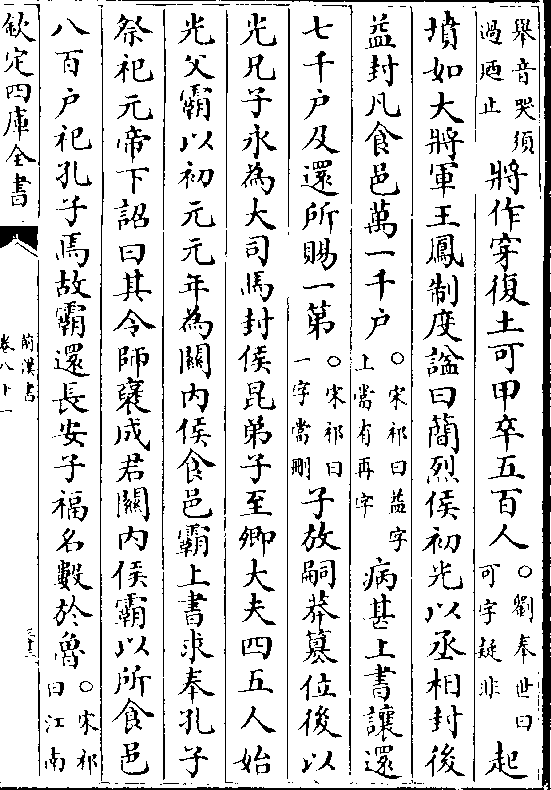 舉音哭須
過迺止
將作穿復土可甲卒五百人
○劉奉世曰
可字疑非
起
墳如大將軍王鳳制度諡曰簡烈侯初光以丞相封後
益封凡食邑萬一千户
○宋祁曰益字
上當有再字
病甚上書讓還
七千户及還所賜一第
○宋祁曰
一字當刪
子放嗣莽簒位後以
光兄子永為大司馬封侯昆弟子至卿大夫四五人始
光父霸以初元元年為關内侯食邑霸上書求奉孔子
祭祀元帝下詔曰其令師襃成君關内侯霸以所食邑
八百户祀孔子焉故霸還長安子福名數於魯
○宋祁
曰江南
欽定四庫全書
前漢書
卷八十一
三十三